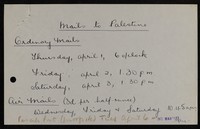 Mails to Palestine
Ordinary Mails
Thursday, April 1, 6 o'clock
Friday, April 2, 1.30 p.m
Saturday, April 3, 1.30 p.m
Air Mails (3d. per half ounce)
Wednesday, Friday & Saturday 10.45 a.m
Parcels Post
April 6